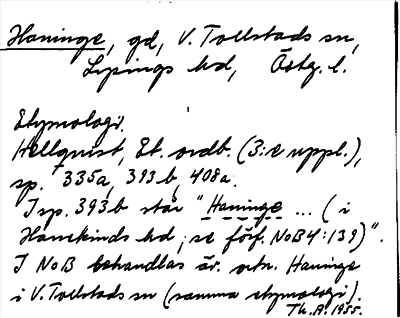 Haninge, gd, V. Tollstads sn,
Lysings hd, Östg. l.
Etymologi.
Hellquist, Et. ordb. (3:e uppl.),
sp. 335a, 393b, 408a.
I sp. 393b står "Haninge ... (i
Hanekinds hd; se förf. NoB 4:139)".
I NoB behandlas äv. ortn. Haninge
i V. Tollstads sn (samma etymologi).
Th. A. 1955.